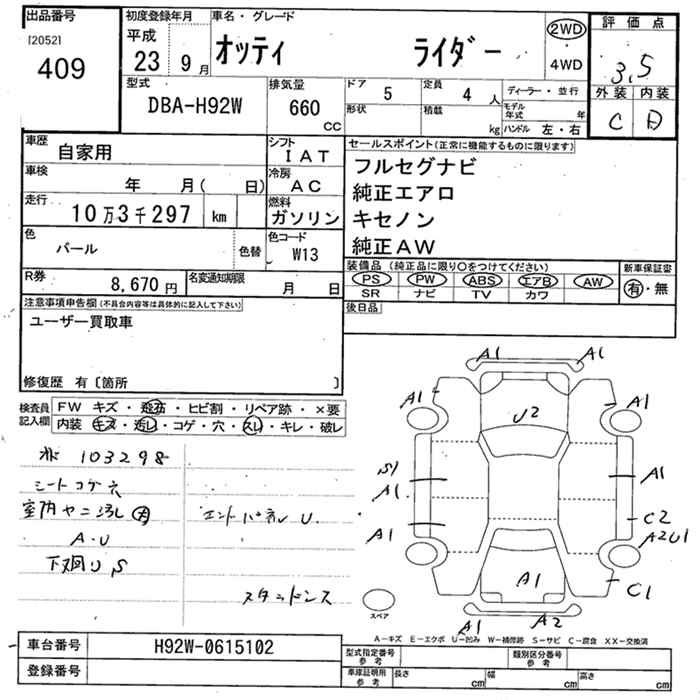 出品番号
[2052]
409
初度登録年月
平成
23 9月
車名・グレード
オッティ ライダー
2WD
4WD
評価点
3.5
外装 内装
C D
型式
DBA-H92W
排気量
660
CC
ドア
5
形状
定員
4人
積載
kg
ディーラー・並行
モデル年式 年
ハンドル 左・右
車歴
自家用
シフト
IAT
車検
年 月( 日)
冷房
AC
走行
10万3千297 km
燃料
ガソリン
色
パール
色替
色コード
W13
R券
8,670円
名変通知期限
月 日
セールスポイント(正常に機能するものに限ります)
フルセグナビ
純正エアロ
キセノン
純正AW
装備品(純正品に限り○をつけてください)
PS PW ABS エアB AW
SR ナビ TV カワ
新車保証書
有・無
後日品
注意事項申告欄(不具合内容等は具体的に記入して下さい)
ユーザー買取車
修復歴 有〔箇所 〕
検査員
記入欄
FW キズ・飛石・ヒビ割・リペア跡・×要
内装 キズ・汚レ・コゲ・穴・スレ・キレ・破レ
103298
シートコゲ穴
室内ヤニ汚レ 大
A・U
下廻りS
エンドパネルU.
スタッドレス
A1 A1
A1 A1
U2
S1
A1 A1
A1
C2
A2U1
C1
A1
A1 A2
スペア
A-キズ E-エクボ U-凹み W-補修跡 S-サビ C-腐食 XX-交換済
車台番号
H92W-0615102
登録番号
型式指定番号
参考
類別区分番号
参考
車庫証明用
参考
長さ cm
幅 cm
高さ cm